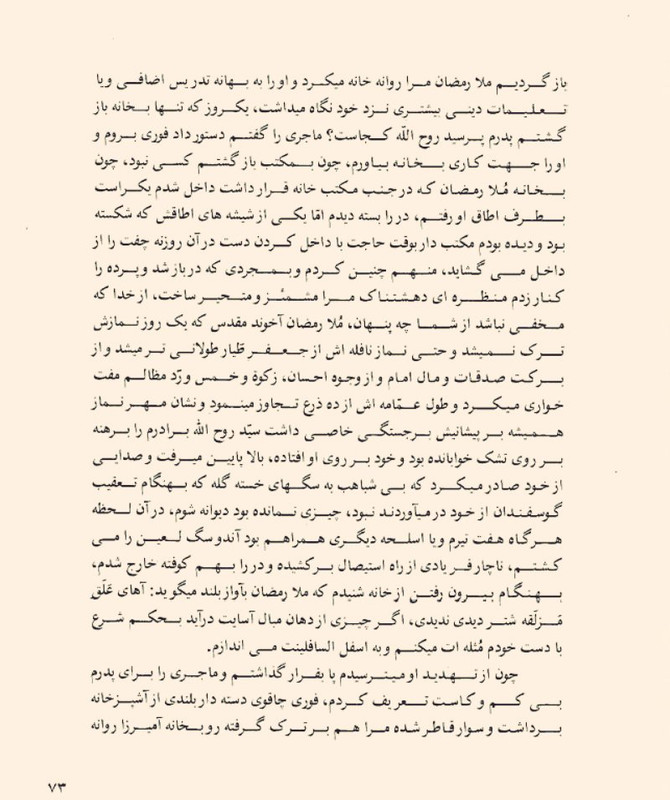 باز گردیم ملا رمضان مرا روانه خانه میکرد و او را به بهانه تدریس اضافی ویا
تعلیمات دینی بیشتری نزد خود نگاه میداشت، یکروز که تنها بخانه باز
گشتم پدرم پرسید روح اللّه کجاست؟ ماجری را گفتم دستور داد فوری بروم و
او را جهت کاری بخانه بیاورم، چون بمکتب باز گشتم کسی نبود، چون
بخانه مُلا رمضان که در جنب مکتب خانه قرار داشت داخل شدم یکراست
بطرف اطاق او رفتم، در را بسته دیدم امّا یکی از شیشه های اطاقش که شکسته
بود و دیده بودم مکتب دار بوقت حاجت با داخل کردن دست در آن روزنه چفت را از
داخل می گشاید، منهم چنین کردم و بمجردی که در باز شد و پرده را
کنار زدم منظره ای دهشتناک مرا مشمئز و متحیر ساخت، از خدا که
مخفی نباشد از شما چه پنهان، مُلا رمضان آخوند مقدس که یک روز نمازش
ترک نمیشد و حتی نماز نافله اش از جعفر طیّار طولانی تر میشد و از
برکت صدقات و مال امام و از وجوه احسان، زکوة و خمس و ردّ مظالم مفت
خواری میکرد و طول عمّامه اش از ده ذرع تجاوز مینمود و نشان مهر نماز
همیشه بر پیشانیش برجستگی خاصی داشت سیّد روح الله برادرم را برهنه
بر روی تشک خوابانده بود و خود بر روی او افتاده، بالا پایین میرفت و صدایی
از خود صادر میکرد که بی شباهب به سگهای خسته گله که بهنگام تعقیب
گوسفندان از خود در میآوردند نبود، چیزی نمانده بود دیوانه شوم، در آن لحظه
هرگاه هفت تیرم ویا اسلحه دیگری همراهم بود آندو سگ لعین را می
کشتم، ناچار فریادی از راه استیصال برکشیده و در را بهم کوفته خارج شدم،
بهنگام بیرون رفتن از خانه شنیدم که ملا رمضان بآواز بلند میگوید: آهای عَلَقِ
مَزلَقه شتر دیدی ندیدی، اگر چیزی از دهان مبال آسایت درآید بحکم شرع
با دست خودم مُثله ات میکنم و به اسفل السافلینت می اندازم.
چون از تهدید او میترسیدم پا بفرار گذاشتم و ماجری را برای پدرم
بی کم و کاست تعریف کردم، فوری چاقوی دسته دار بلندی از آشپزخانه
برداشت و سوار قاطر شده مرا هم بر ترک گرفته رو بخانه آمیرزا روانه
۷۳